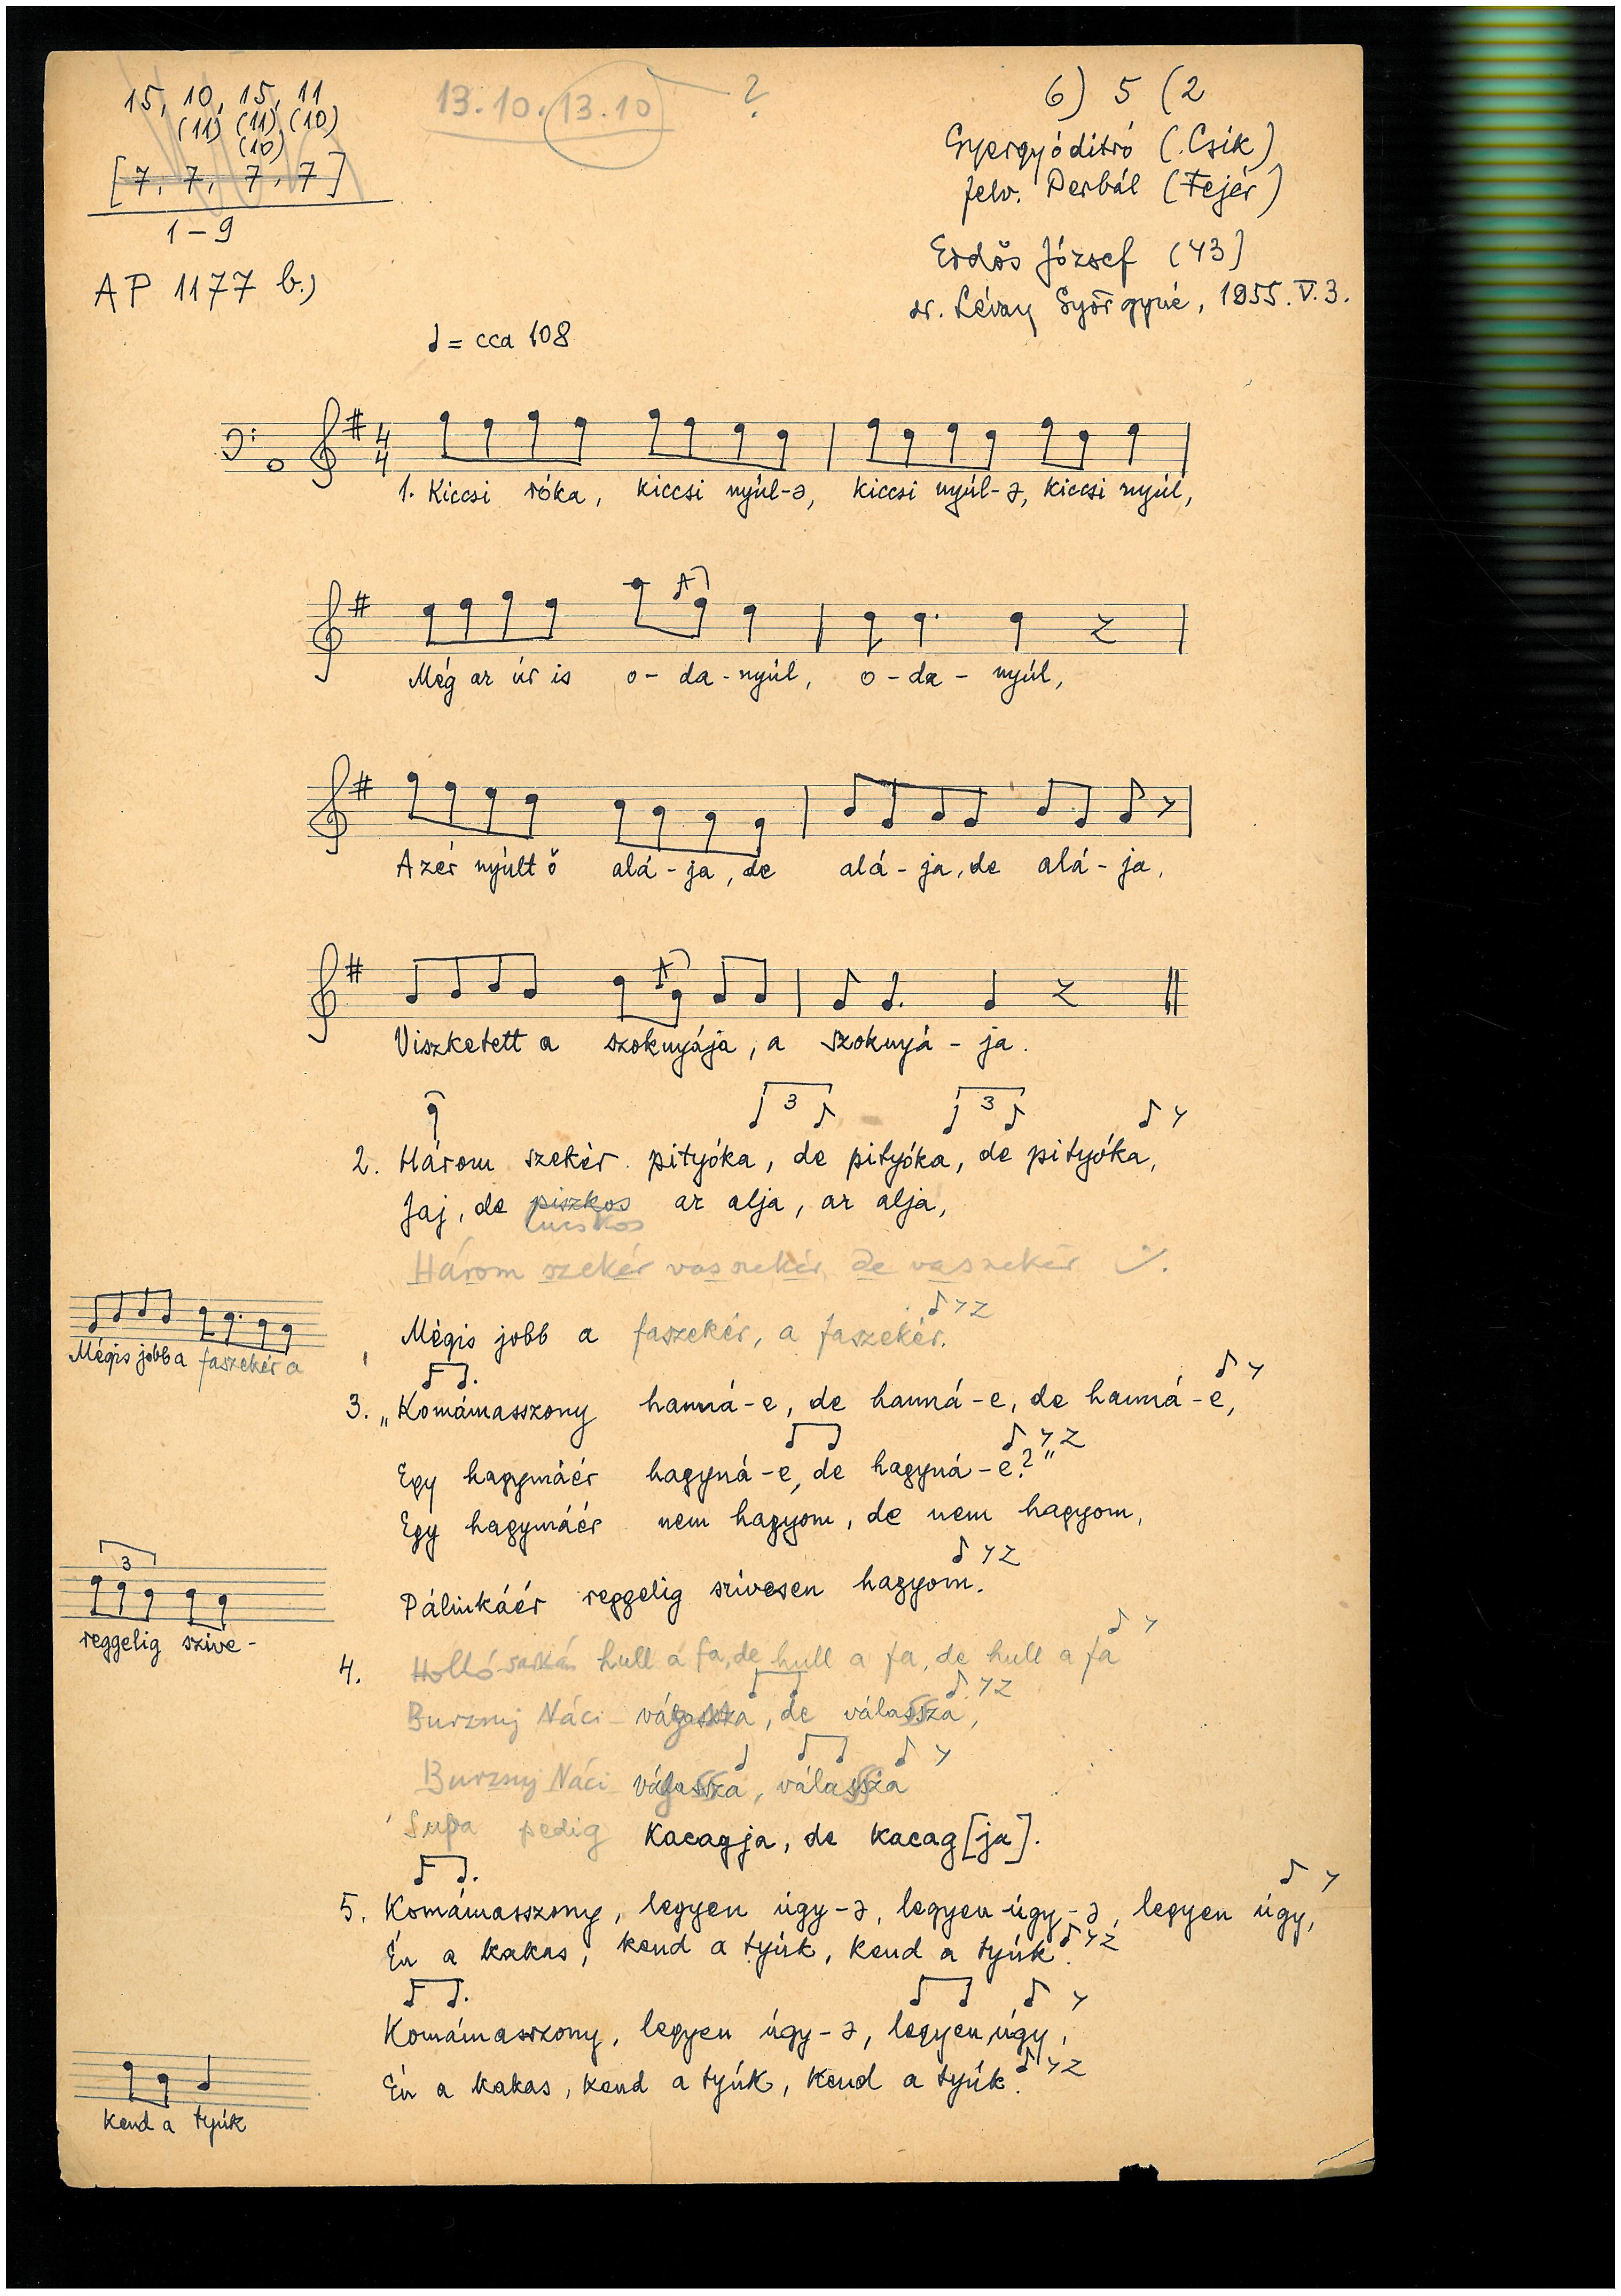 15, 10, 15, 11
(11) (11) (10)
(10)
[7, 7, 7, 7]
1-9
AP 1177 b.)
13.10.13.10 ?
6) 5 (2
Gyergyóditró (Csík)
felv. Perbál (Fejér)
Erdős József (43)
dr. Lévay Györgyné, 1955. V. 3.
= cca 108
4
4
1. Kiccsi róka, kiccsi nyúl-ə, kiccsi nyúl-ə, kiccsi nyúl,
Még az úr is o-da-nyúl, o-da-nyúl,
Azér nyúlt ő alá-ja, de alá-ja, de alá-ja,
Viszketett a szoknyája, a szoknyá-ja.
3 3
2. Három szekér pityóka, de pityóka, de pityóka,
Jaj, de piszkos az alja, az alja,
lucskos
Három szekér vasszekér de vasszekér
Mégis jobb a faszekér, a faszekér.
Mégis jobb a faszekér a
3. „Komámasszony hanná-e, de hanná-e, de hanná-e,
Egy hagymáér hagyná-e, de hagyná-e?"
Egy hagymáér nem hagyom, de nem hagyom,
Pálinkáér reggelig szívesen hagyom.
3
reggelig szíve-
4. Holló hull a fa, de hull a fa, de hull a fa
Náci , de
Náci
pedig kacagja, de kacag[ja].
5. Komámasszony, legyen úgy-ə, legyen úgy-ə, legyen úgy,
Én a kakas, kend a tyúk, kend a tyúk.
Komámasszony, legyen úgy-ə, legyen úgy,
Én a kakas, kend a tyúk, kend a tyúk.
kend a tyúk